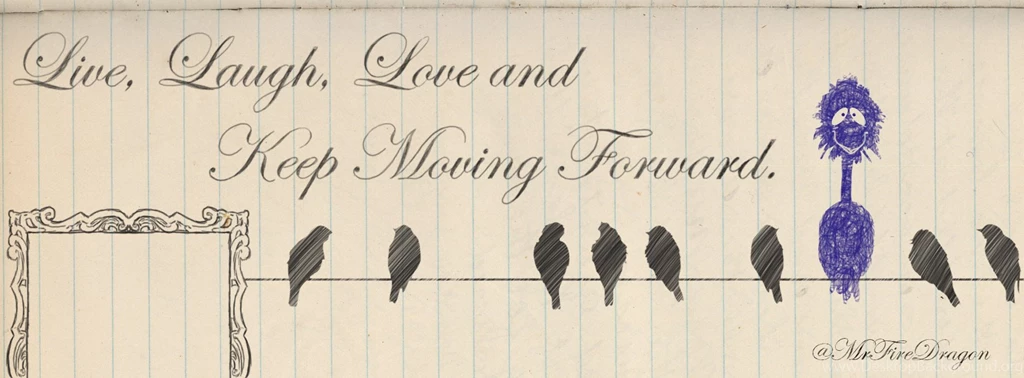 Live, Laugh, Love and
Keep Moving Forward.
@MrFireDragon